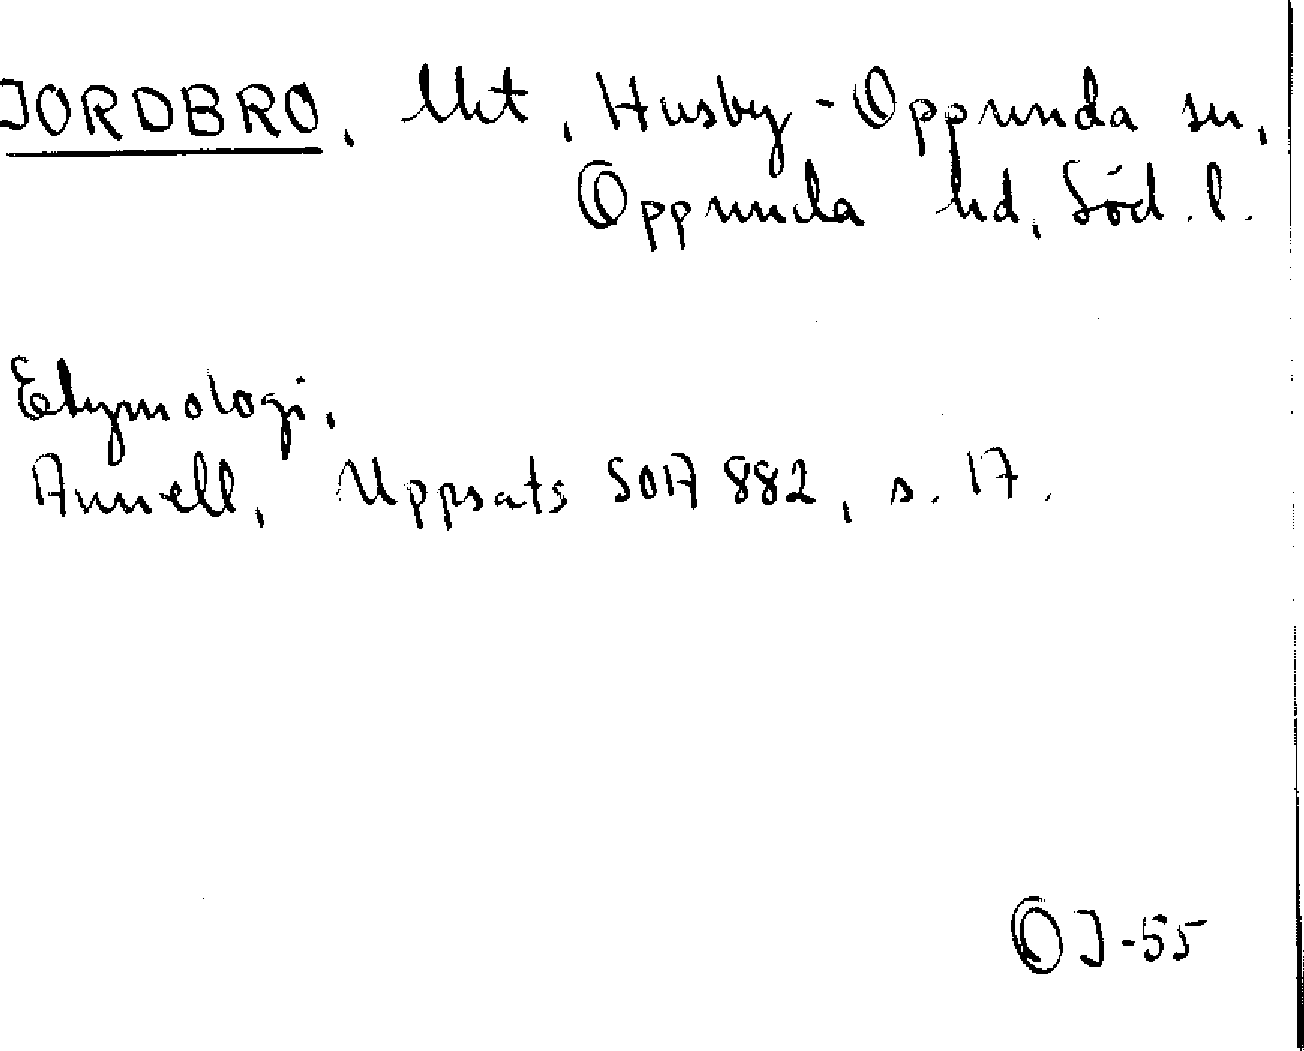 JORDBRO, Uht, Husby-Oppunda sn,
Oppunda hd, Söd. l.
Etymologi.
Annell, Uppsats SOA 882, s. 17.
OJ-55